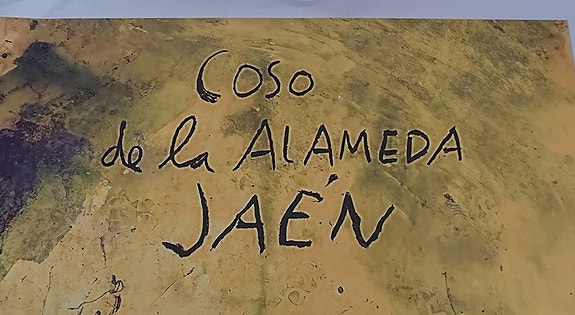 Coso
de la ALAMEDA
JAÉN